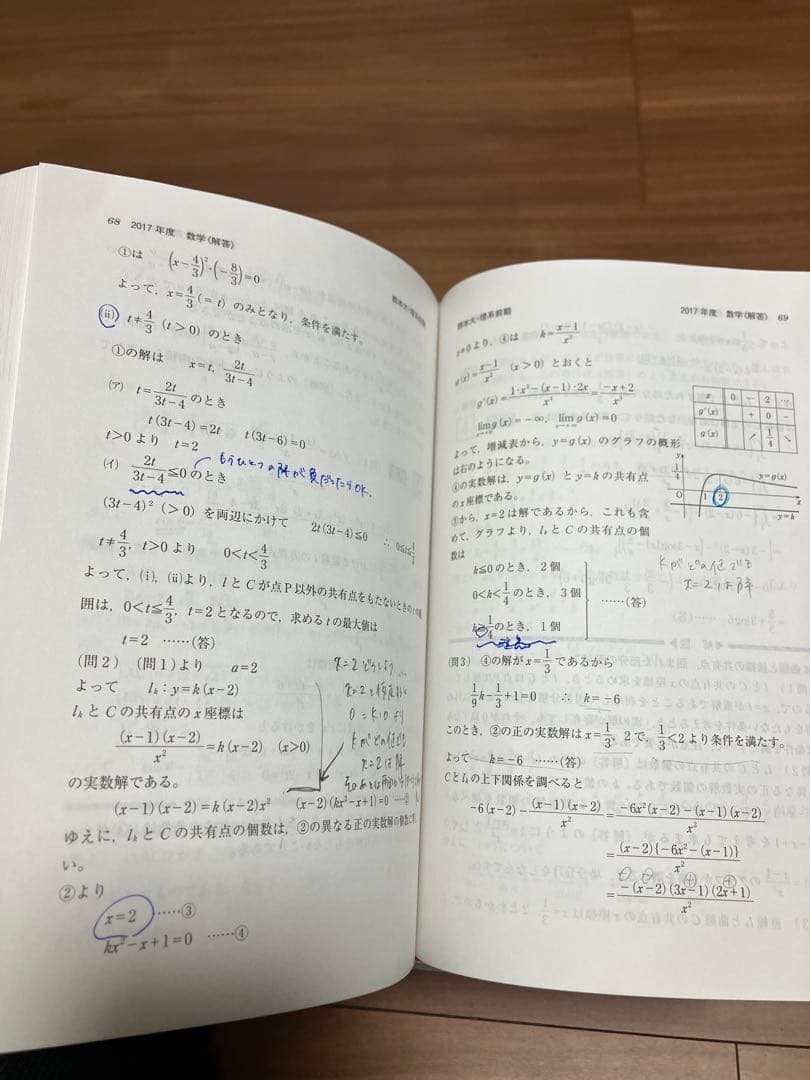 68 2017年度 数学〈解答〉
熊本大-理系前期
①は (x-4/3)²・(-8/3)=0
よって, x=4/3(=t) のみとなり, 条件を満たす。
(ii) t≠4/3 (t>0) のとき
①の解は x=t, 2t/(3t-4)
(ア) t=2t/(3t-4) のとき
t(3t-4)=2t t(3t-6)=0
t>0 より t=2
もうひとつの解が負だったらOK.
(イ) 2t/(3t-4)≦0 のとき
(3t-4)²(>0) を両辺にかけて 2t(3t-4)≦0 ∴ 0≦t≦4/3
t≠4/3, t>0 より 0<t<4/3
よって, (i), (ii)より, lとCが点P以外の共有点をもたないときのtの範
囲は, 0<t≦4/3, t=2 となるので, 求めるtの最大値は
t=2 ……(答)
(問2) (問1)より a=2
よって l_k : y=k(x-2)
l_k と C の共有点の x 座標は
(x-1)(x-2)/x²=k(x-2) (x>0)
の実数解である。
x=2 どうしよう
0=k・0 より
kがどの値でも
x=2は解
(x-1)(x-2)=k(x-2)x² (x-2)(kx²-x+1)=0 ……②
ゆえに, l_k と C の共有点の個数は, ②の異なる正の実数解の個数に等し
い。
②より
x=2 ……③
kx²-x+1=0 ……④
熊本大-理系前期
2017年度 数学〈解答〉 69
x≠0 より, ④は k=(x-1)/x²
g(x)=(x-1)/x² (x>0) とおくと
g'(x)=(1・x²-(x-1)・2x)/x⁴=(-x+2)/x³
lim g(x)=-∞, lim g(x)=0
x 0 … 2 …
g'(x) + 0 -
g(x) ↗ 1/4 ↘
よって, 増減表から, y=g(x) のグラフの概形
は右のようになる。
④の実数解は, y=g(x) と y=k の共有点
の x 座標である。
③から, x=2 は解であるから, これも含
めて, グラフより, l_k と C の共有点の個
数は
y
1/4
0 1 2 x
y=g(x)
y=k
kがどの値でも
x=2は解
k≦0 のとき, 2個
0<k<1/4 のとき, 3個 ……(答)
k≧1/4 のとき, 1個
(問3) ④の解が x=1/3 であるから
1/9k-1/3+1=0 ∴ k=-6
このとき, ②の正の実数解は x=1/3, 2 で, 1/3<2 より条件を満たす。
よって k=-6 ……(答)
C と l_k の上下関係を調べると
-6(x-2)-(x-1)(x-2)/x²=(-6x²(x-2)-(x-1)(x-2))/x²
=(x-2){-6x²-(x-1)}/x²
⊖ ⊖ ⊕ ⊕
=-(x-2)(3x-1)(2x+1)/x²